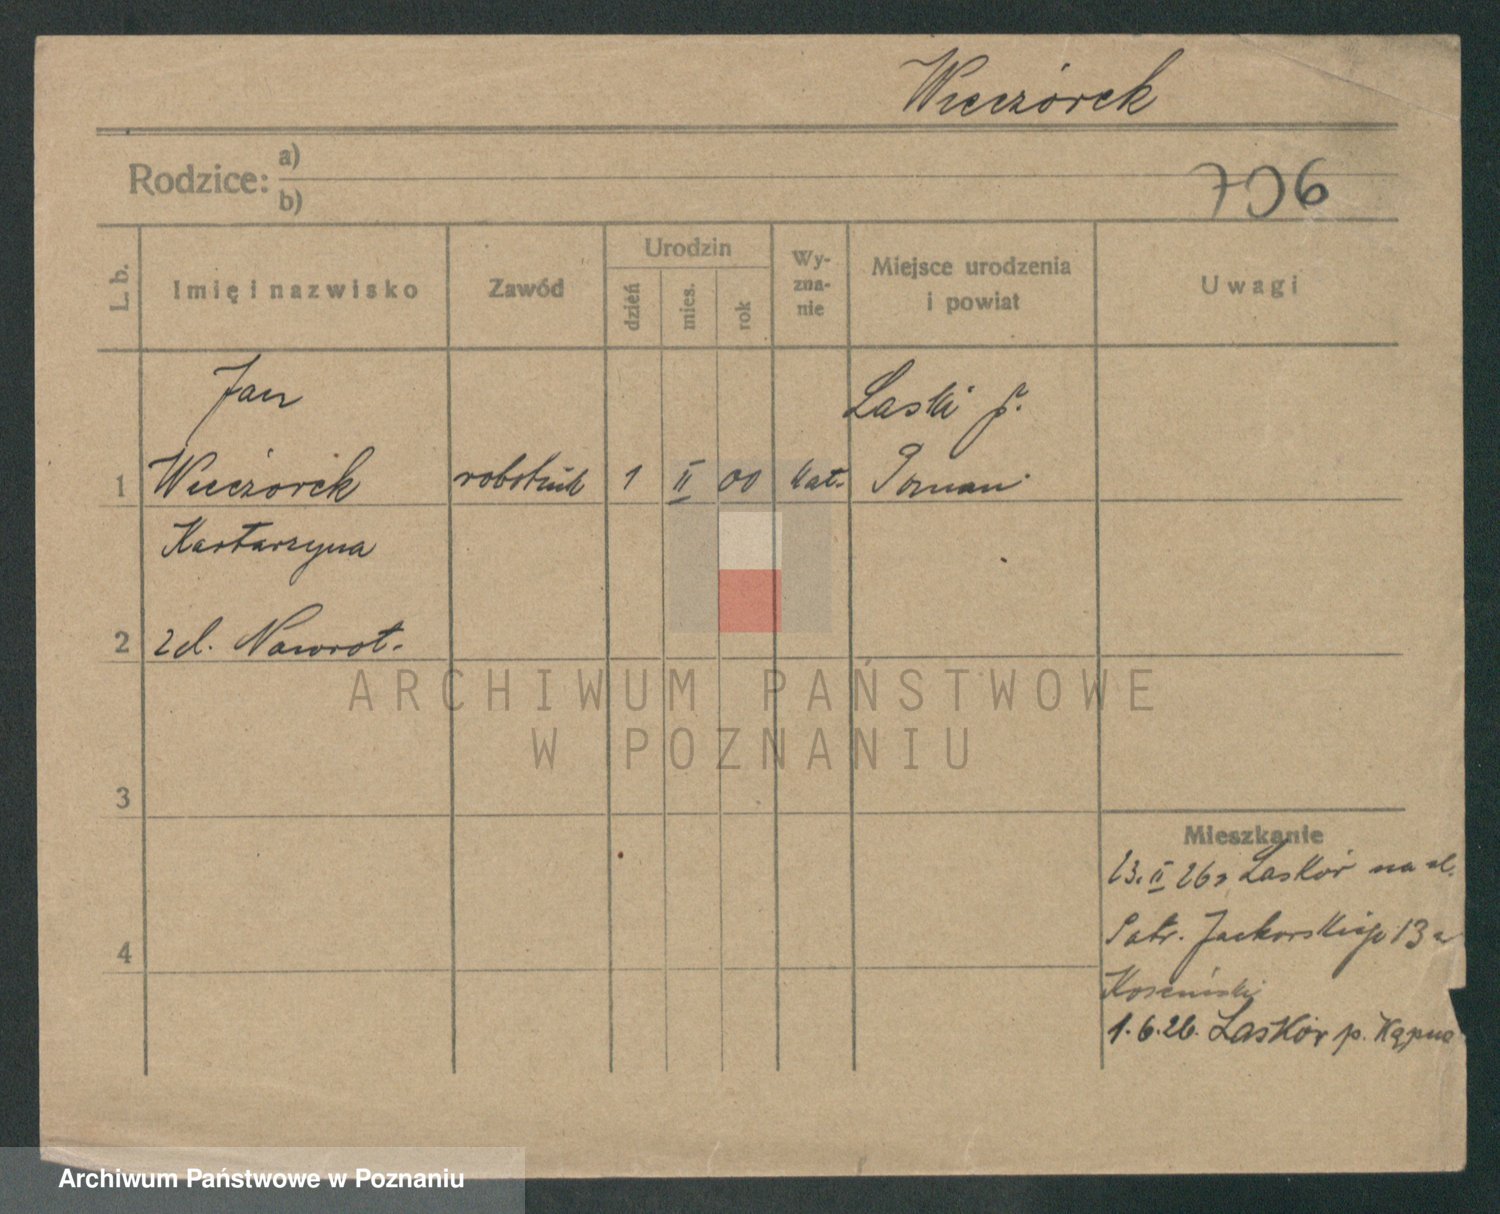 Wieczórek
Rodzice: a)
b)
706
L. b.
Imię i nazwisko
Zawód
Urodzin
dzień
mies.
rok
Wy-
zna-
nie
Miejsce urodzenia
i powiat
Uwagi
Jan
Laski p.
1 Wieczorek robotnik 1 II 00 kat. Poznań
Kartarzyna
2 zd. Nawrot.
ARCHIWUM PAŃSTWOWE
W POZNANIU
3
Mieszkanie
23. II 26 z Laskór na ul.
4
Patr. Jackowskiego 13 u
1.6.26. Laskór p. Kępno
Archiwum Państwowe w Poznaniu